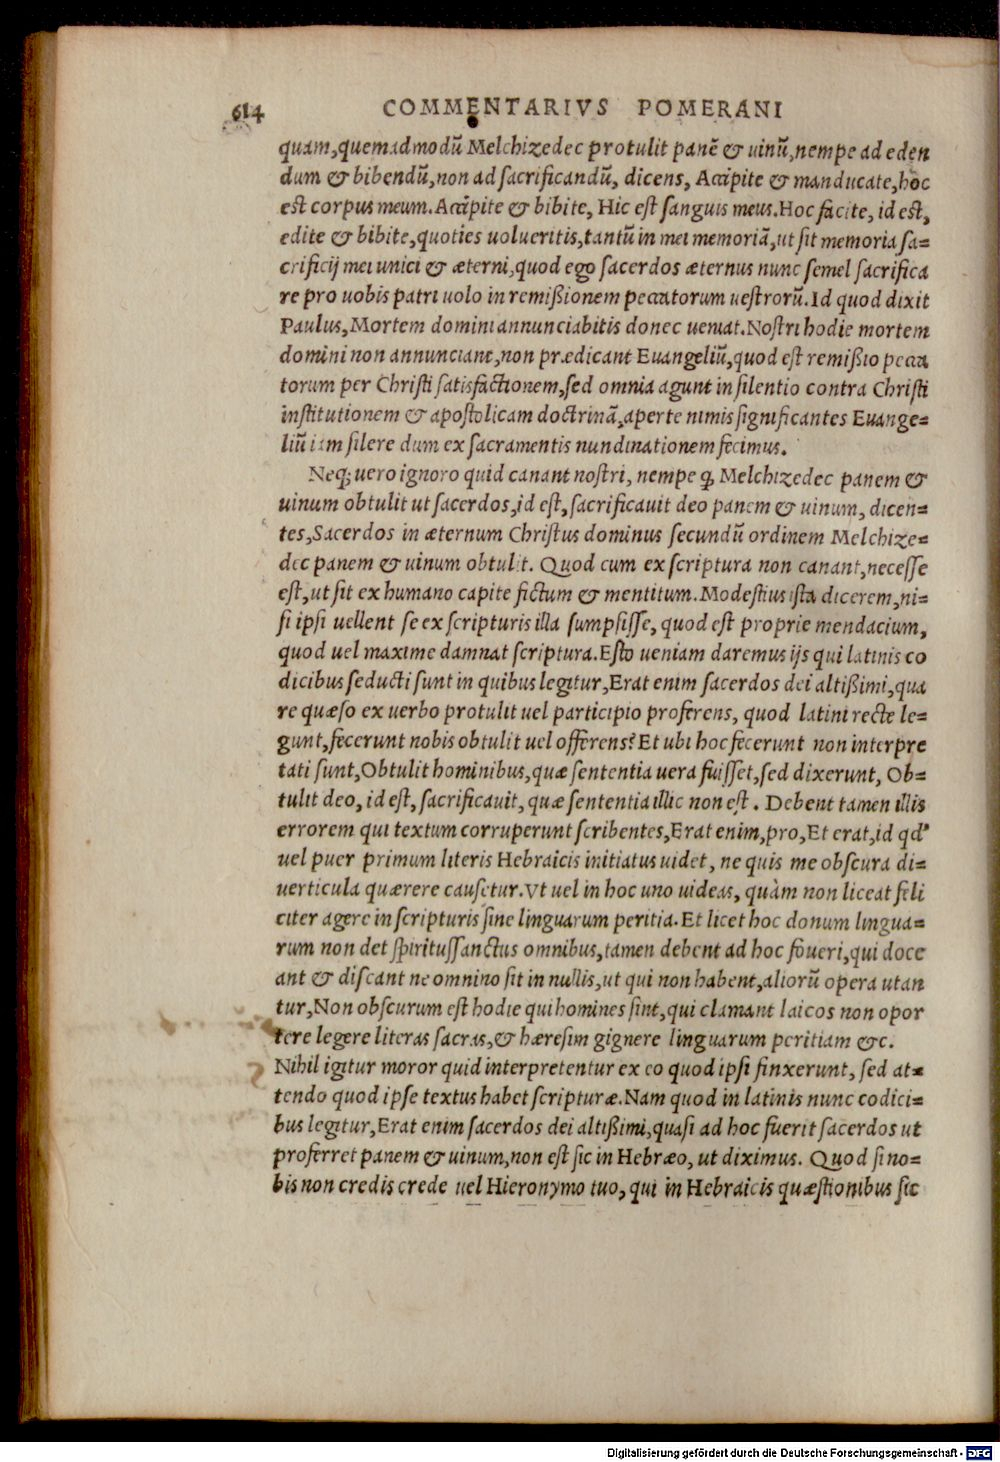 614 COMMENTARIVS POMERANI
quam,quemadmodũ Melchizedec protulit panẽ & uinũ,nempe ad eden
dum & bibendũ,non ad sacrificandũ, dicens, Accipite & manducate,hoc
est corpus meum.Accipite & bibite, Hic est sanguis meus.Hoc facite, id est,
edite & bibite,quoties uolueritis,tantũ in mei memoriã,ut sit memoria sa=
crificij mei unici & æterni,quod ego sacerdos æternus nunc semel sacrifica
re pro uobis patri uolo in remißionem peccatorum uestrorũ.Id quod dixit
Paulus,Mortem domini annunciabitis donec ueniat.Nostri hodie mortem
domini non annunciant,non prædicant Euangeliũ,quod est remißio pecca
torum per Christi satisfactionem,sed omnia agunt in silentio contra Christi
institutionem & apostolicam doctrinã,aperte nimis significantes Euange=
liũ iam silere dum ex sacramentis nundinationem fecimus.
Neq; uero ignoro quid canant nostri, nempe ꝙ Melchizedec panem &
uinum obtulit ut sacerdos,id est,sacrificauit deo panem & uinum, dicen=
tes,Sacerdos in æternum Christus dominus secundũ ordinem Melchize=
dec panem & uinum obtulit. Quod cum ex scriptura non canant,necesse
est,ut sit ex humano capite fictum & mentitum.Modestius ista dicerem,ni=
si ipsi uellent se ex scripturis illa sumpsisse, quod est proprie mendacium,
quod uel maxime damnat scriptura.Esto ueniam daremus ijs qui latinis co
dicibus seducti sunt in quibus legitur,Erat enim sacerdos dei altißimi,qua
re quæso ex uerbo protulit uel participio proferens, quod latini recte le=
gunt,fecerunt nobis obtulit uel offerens? Et ubi hoc fecerunt non interpre
tati sunt,Obtulit hominibus,quæ sententia uera fuisset,sed dixerunt, Ob=
tulit deo, id est, sacrificauit, quæ sententia illic non est. Debent tamen illis
errorem qui textum corruperunt scribentes,Erat enim,pro,Et erat,id qd'
uel puer primum literis Hebraicis initiatus uidet, ne quis me obscura di=
uerticula quærere causetur.Vt uel in hoc uno uideas, quàm non liceat feli
citer agere in scripturis sine linguarum peritia.Et licet hoc donum lingua=
rum non det spiritussanctus omnibus,tamen debent ad hoc foueri,qui doce
ant & discant ne omnino sit in nullis,ut qui non habent,aliorũ opera utan
tur,Non obscurum est hodie qui homines sint,qui clamant laicos non opor
tere legere literas sacras,& hæresim gignere linguarum peritiam &c.
Nihil igitur moror quid interpretentur ex eo quod ipsi finxerunt, sed at=
tendo quod ipse textus habet scripturæ.Nam quod in latinis nunc codici=
bus legitur,Erat enim sacerdos dei altißimi,quasi ad hoc fuerit sacerdos ut
proferret panem & uinum,non est sic in Hebræo, ut diximus. Quod si no=
bis non credis crede uel Hieronymo tuo, qui in Hebraicis quæstionibus sic
Digitalisierung gefördert durch die Deutsche Forschungsgemeinschaft - DFG